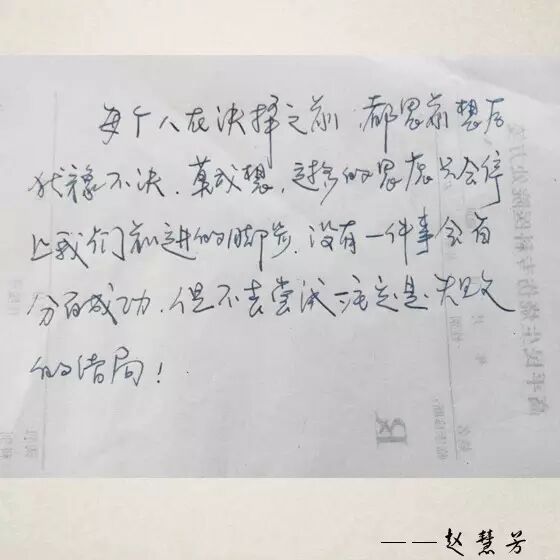 每个人在决择之前，都思前想后，
犹豫不决，莫或想，过多的思虑只会停
止我们前进的脚步，没有一件事会百
分百成功，但不去尝试一定是失败
的结局！
——赵慧芳